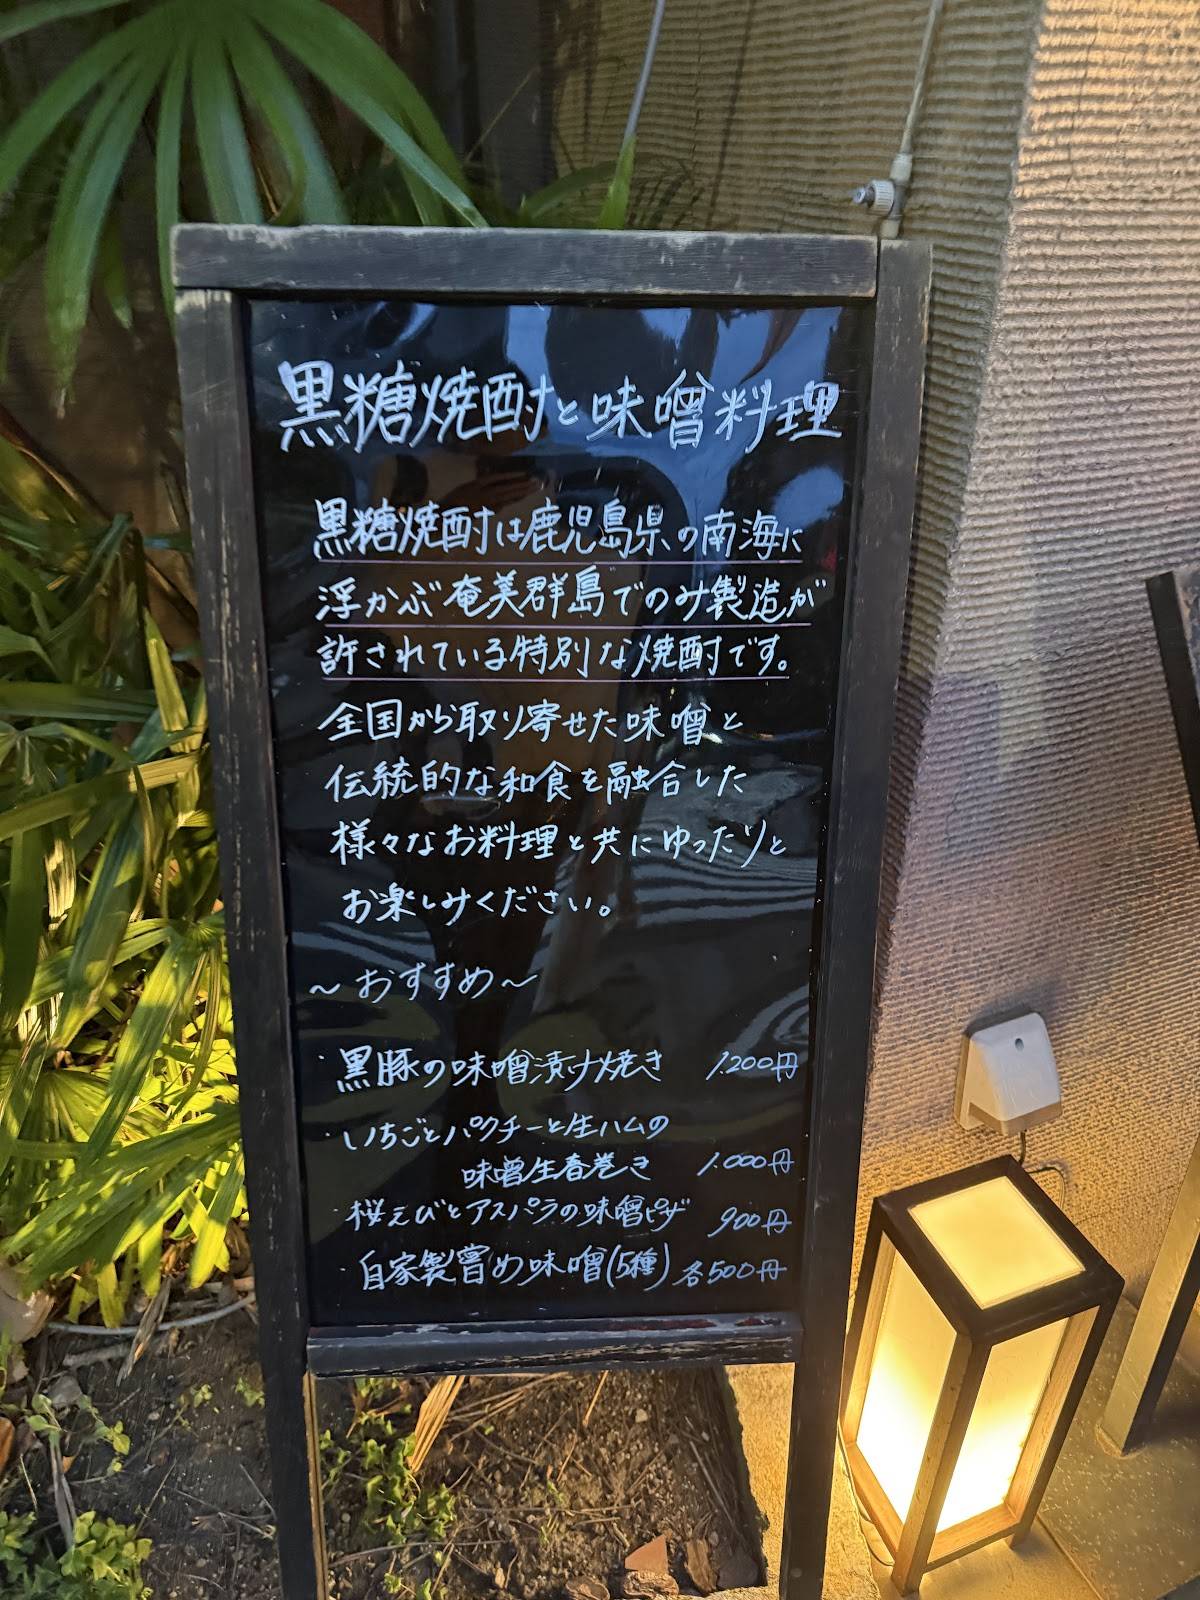 黒糖焼酎と味噌料理
黒糖焼酎は鹿児島県の南海に
浮かぶ奄美群島でのみ製造が
許されている特別な焼酎です。
全国から取り寄せた味噌と
伝統的な和食を融合した
様々なお料理と共にゆったりと
お楽しみください。
～おすすめ～
・黒豚の味噌漬け焼き 1.200円
・いちごとパクチーと生ハムの
味噌生春巻き 1.000円
・桜えびとアスパラの味噌ピザ 900円
・自家製嘗め味噌(5種) 各500円